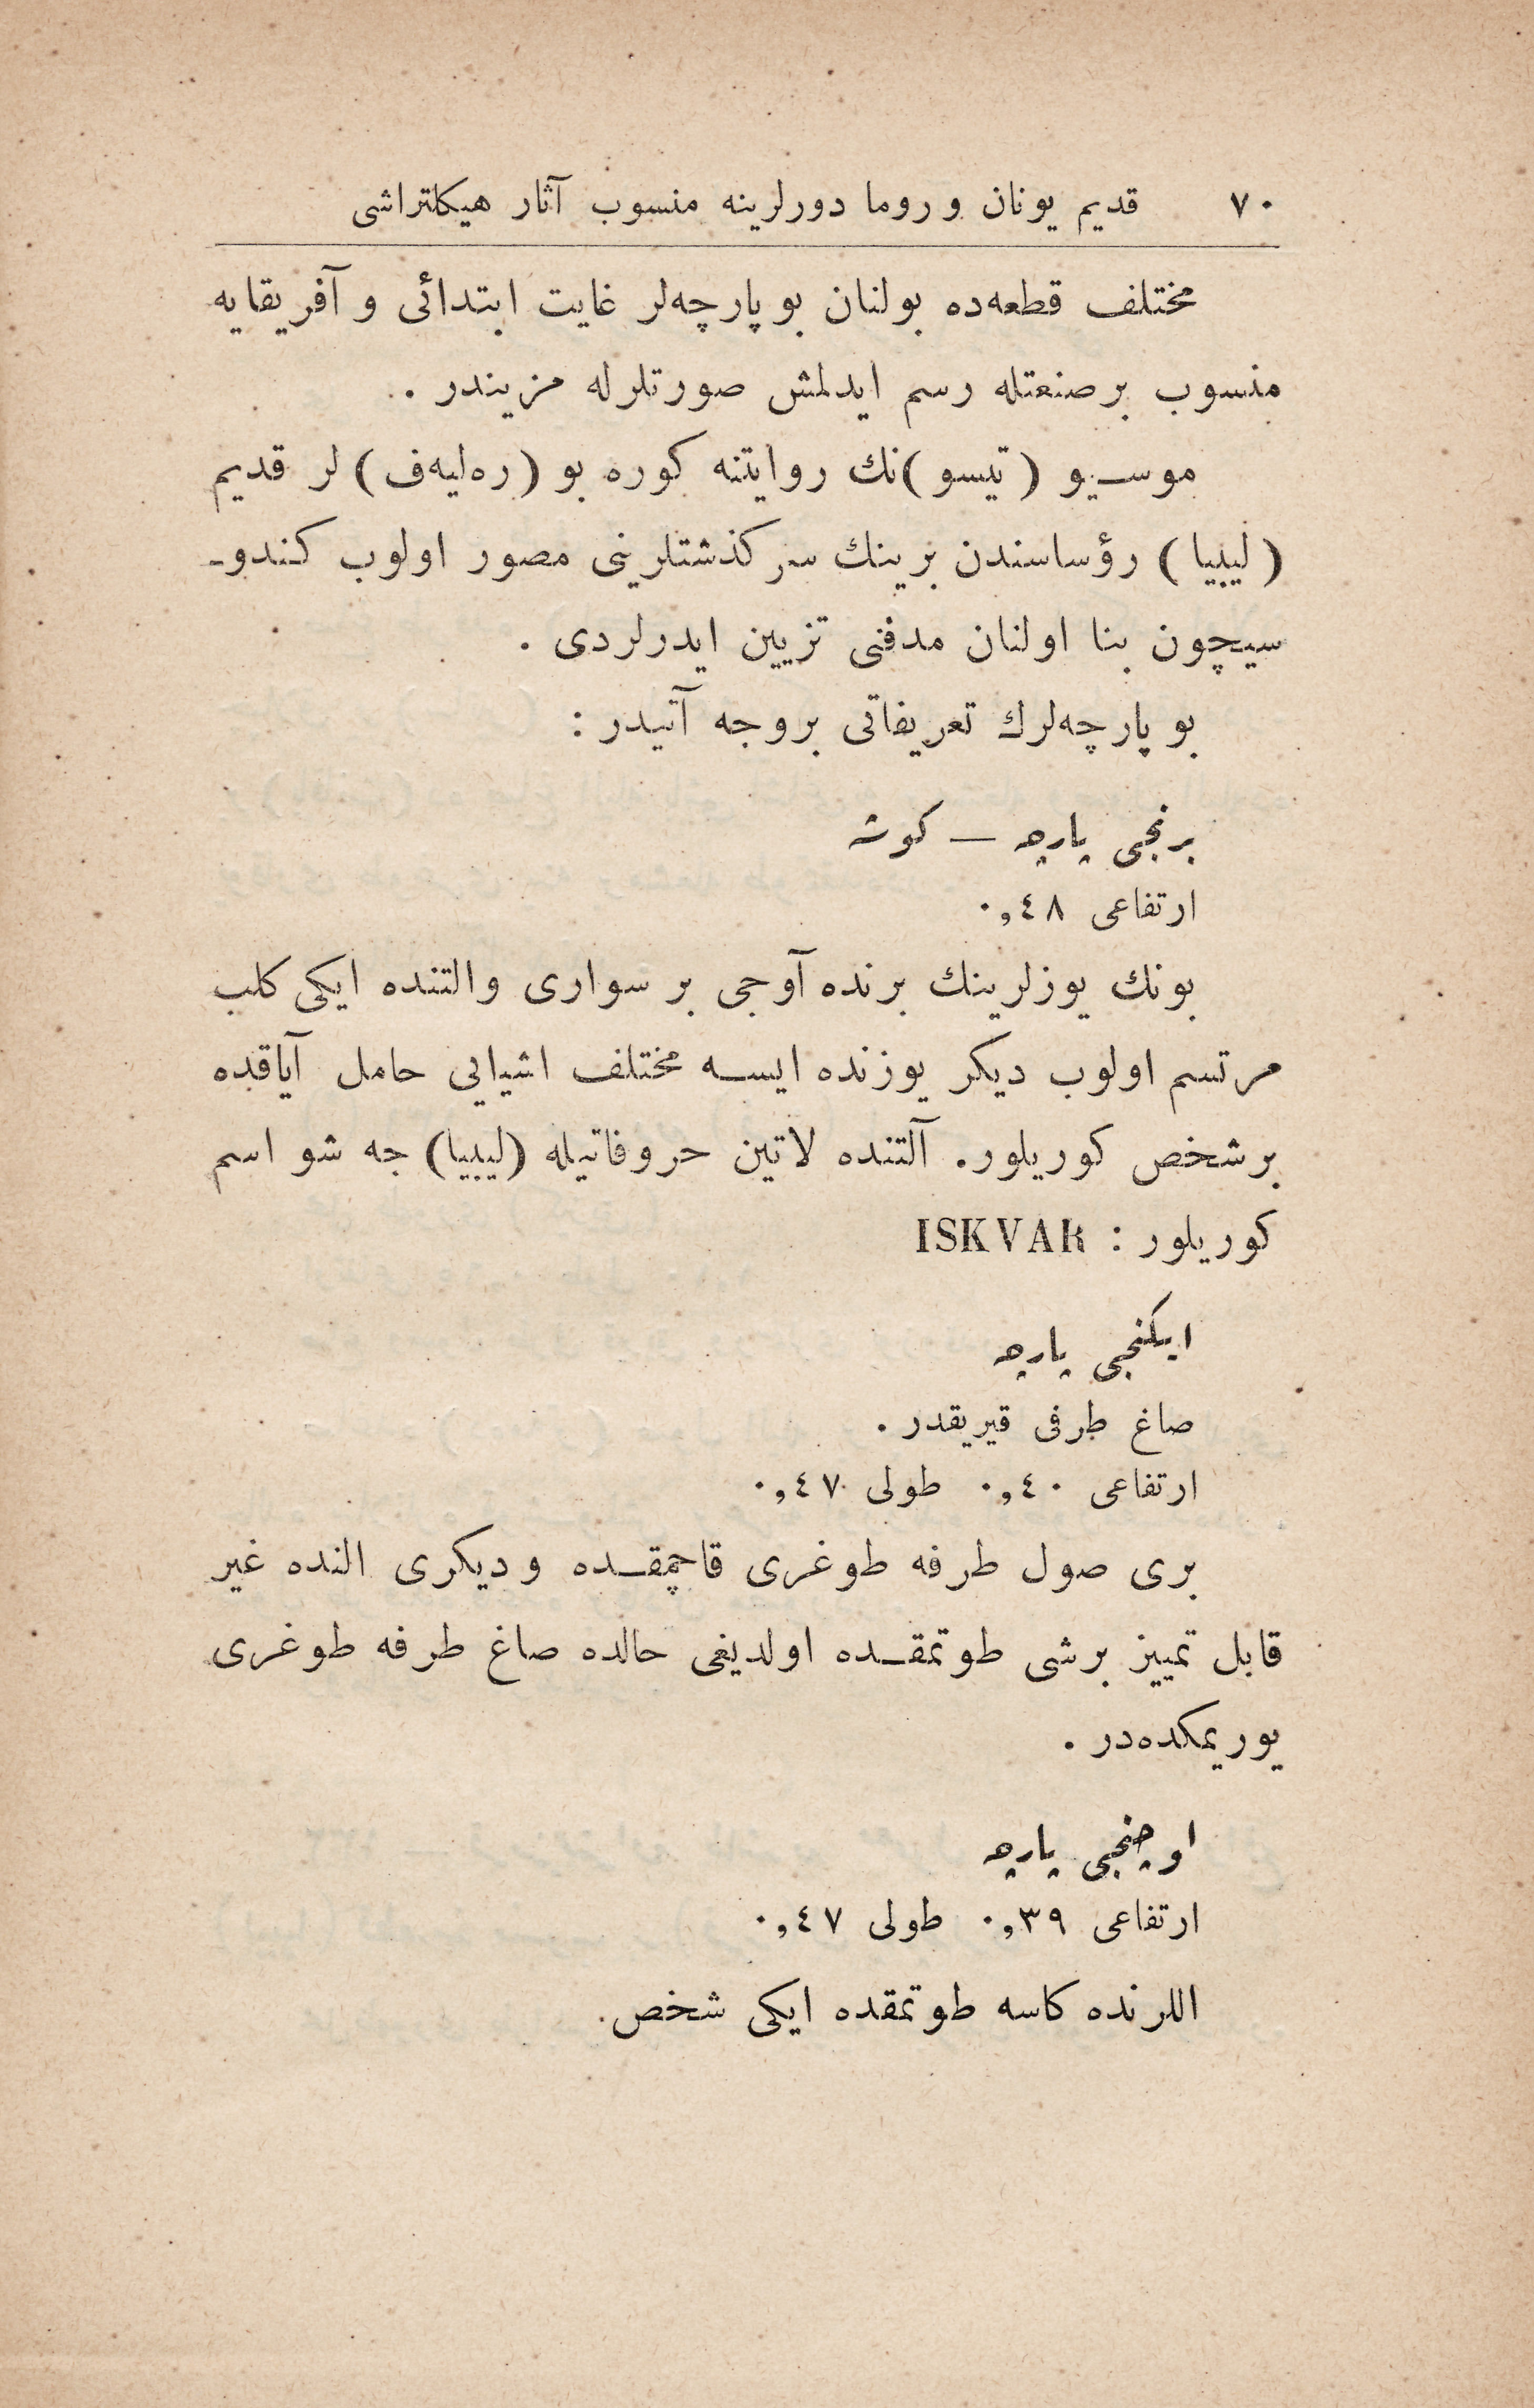 ٧٠ قديم يونان و روما دورلرينه منسوب آثار هيكلتراشی
مختلف قطعه‌ده بولنان بو پارچه‌لر غايت ابتدائی و آفريقايه
منسوب برصنعتله رسم ايدلمش صورتلرله مزيندر .
موسيو (تيسو)نك روايتنه كوره بو (ره‌ليه‌ف) لر قديم
(ليبيا) رؤساسندن برينك سركذشتلرينی مصور اولوب كندو-
سيچون بنا اولنان مدفنی تزيين ايدرلردی .
بو پارچه‌لرك تعريفاتی بروجه آتيدر :
برنجی پارچه — كوشه
ارتفاعی ٠,٤٨
بونك يوزلرينك برنده آوجی بر سواری والتنده ايكی كلب
مرتسم اولوب ديكر يوزنده ايسه مختلف اشيايی حامل آياقده
برشخص كوريلور. آلتنده لاتين حروفاتيله (ليبيا) جه شو اسم
كوريلور : ISKVAR
ايكنجی پارچه
صاغ طرفی قيريقدر .
ارتفاعی ٠,٤٠ طولی ٠,٤٧
بری صول طرفه طوغری قاچمقده وديكری النده غير
قابل تمييز برشی طوتمقده اولديغی حالده صاغ طرفه طوغری
يوريمكده‌در .
اوچنجی پارچه
ارتفاعی ٠,٣٩ طولی ٠,٤٧
اللرنده كاسه طوتمقده ايكی شخص.